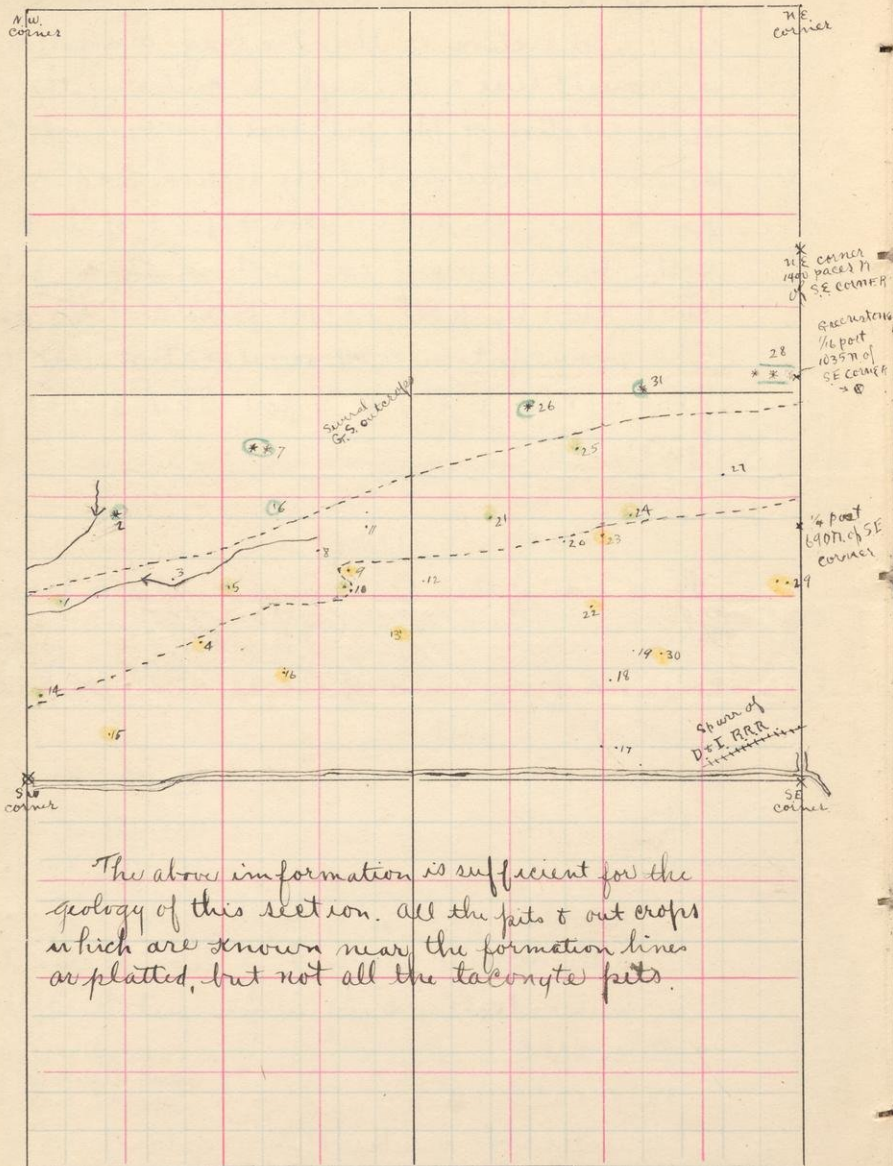 N.W.
corner
N E.
corner
N E corner
1400 paces N
of SE CORNER
Greenstone
1/16 post
1035 N of
SE CORNER
28
31
26
Several
G.S. outcrops
25
7
27
2
6
21
24
1/4 post
690 N. of SE
corner
11
20
23
8
9
3
5
10
12
29
1
22
13
4
19
30
16
18
14
15
17
Spurr of
D & I. R.R.R
SW
corner
SE
corner
The above imformation is sufficient for the
geology of this section. All the pits & out crops
which are known near the formation lines
ar platted, but not all the taconyte pits.